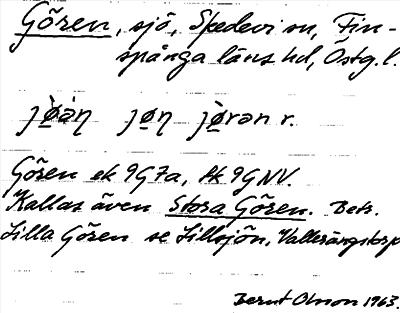 Gören, sjö, Skedevi sn, Fin-
spånga läns hd, Östg. l.
jø̀ràn jøn jø̀rən r.
Gören ek 9G7a, tk 9GNV.
Kallas även Stora Gören. Betr.
Lilla Gören se Lillsjön, Vallerängstorp
Bernt Olsson 1963.